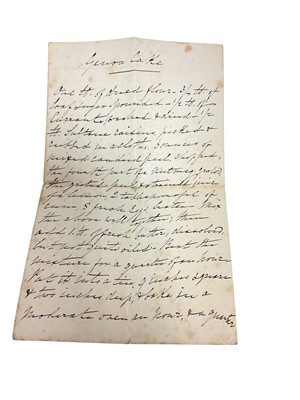 Genoa Cake
One lb. of dried flour 3/4 lb. of
loaf sugar pounded 1/2 lb. of
Currants, washed & dried 1/2
lb. Sultana raisins picked &
rubbed in a cloth, 3 ounces of
mixed candied peel, chopped,
the fourth part of a nutmeg grated
the grated peel & strained juice
of a lemon 2 tablespoonful of
8 eggs, beaten. Mix
the above well together; then
add lb. of fresh butter, dissolved
but not quite oiled. Beat the
mixture for a quarter of an hour
Put it into a tin, 9 inches square
& two inches deep, & bake in a
moderate oven an hour, & a quarter